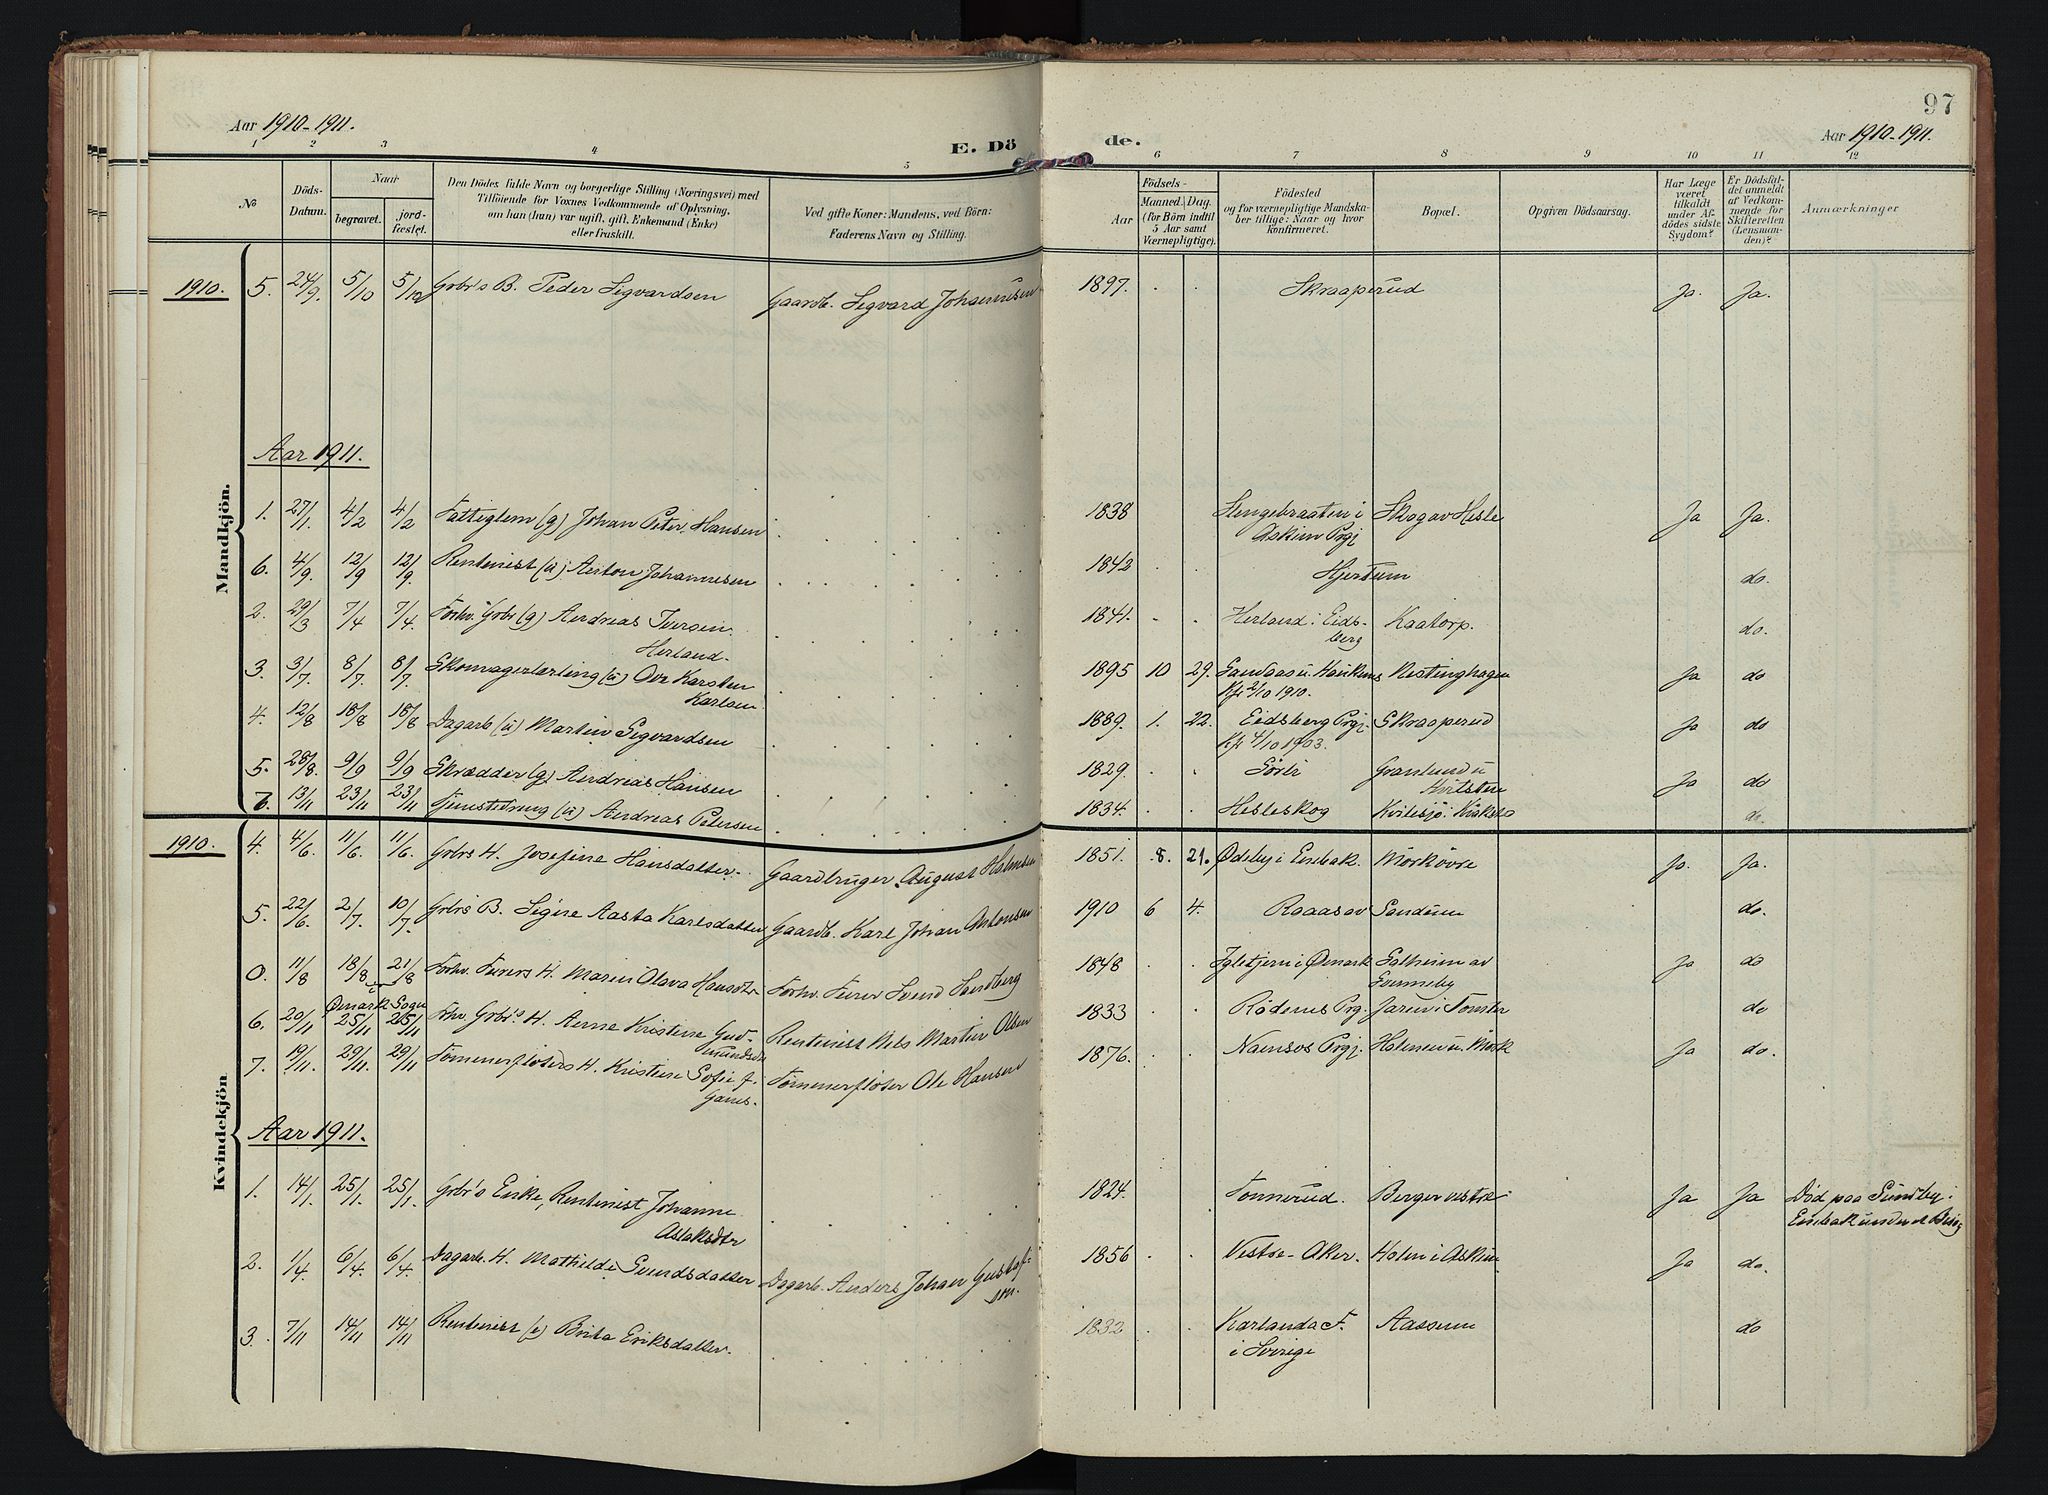 97
Aar 1910-1911.
E. Dö
de.
Aar 1910-1911.
1 2 3 4 5 6 7 8 9 10 11 12
No
Döds-
Datum.
Naar
begravet.
jord-
fæstet.
Den Dödes fulde Navn og borgerlige Stilling (Næringsvei) med
Tilföiende for Voxnes Vedkommende af Oplysning,
om han (hun) var ugift, gift, Enkemand (Enke)
eller fraskilt.
Ved gifte Koner: Mandens, ved Börn:
Faderens Navn og Stilling.
Födsels-
Aar
Maaned. Dag.
(for Börn indtil
5 Aar samt
Værnepligtige).
Födested
og for værnepligtige Mandska-
ber tillige: Naar og hvor
konfirmeret.
Bopæl.
Opgiven Dödsaarsag.
Har Læge
været
tilkaldt
under Af-
dödes sidste
Sygdom?
Er Dödsfal-
det anmeldt
af Vedkom-
mende for
Skifteretten
(Lensman-
den)?
Anmærkninger
Mandkjön.
1910. 5. 24/9 5/10 5/10 Grbr's B. Peder Sigvardsen Gaardb. Sigvard Johannesen 1897. Skraaperud Ja. Ja.
Aar 1911.
1. 27/1. 4/2 4/2 Fattiglem (g) Johan Peter Hansen 1838 Stengebraaten i Skogav Hesle Ja Ja.
Askim Prgj
6. 4/9. 12/9 12/9. Rentenist (u) Anton Johannesen 1842 Hjertum do.
2. 29/3 7/4 7/4. Forhv. Grbr (g) Andreas Iversen 1841. Herland i Eids- Kaatorp. do.
Herland- berg
3. 3/7. 8/7. 8/7. Skomagerlærling (u) Ove Karsten 1895 10 29. Sandaas u. Haukenes Kestinghagen Ja do
Karlsen Kfr 2/10 1910.
4. 12/8 18/8 18/8 Dagarb (u) Martin Sigvardsen 1889. 1. 22. Eidsberg Prgj. Skraaperud Ja do
Kfr 4/10 1903.
5. 28/8. 9/9 9/9 Skrædder (g) Andreas Hansen 1829. Sörli Granlund u Ja do
7. 13/11 23/11 23/11 (u) Andreas Petersen 1834. Hesleskog do.
Kvindekjön
1910. 4. 4/6. 11/6. 11/6. Grbrs H. Josefine Hansdatter. Gaardbruger August Holmsen 1851. 8. 21. Ödeby i Enebak. Mörkövre Ja. Ja.
5. 22/6. 2/7. 10/7. Grbrs B. Signe Aasta Karlsdatter Gaardb. Karl Johan Antonsen 1910 6 4. Raaas av Sandenn do.
0. 11/8 18/8 21/8 Forhv. H. Maren Olava Hansdtr Forhv. Svend Sandberg 1848 Igletjern i Ömark Solheim av Ja do
Ömark Sogn
6. 20/11 25/11 25/11 Forhv. Grbr's H. Anne Kristine Gud- Rentenist Nils Martin Olsen 1833 Rödenes Prgj. Jaren i Tomter do
mundsdtr
7. 19/11. 29/11. 29/11 Tömmerflöters H. Kristine Sofie f. Tömmerflöter Ole Hansen 1876. Namsos Prgj. Holmen u. Mörk Ja do.
Aar 1911.
1. 14/1. 25/1. 25/1. Grbr's Enke, Rentenist Johanne 1824. Tonnerud. Berger vestre Ja Ja Död paa Sundby i
Aslaksdtr Enebak
2. 1/4. 6/4. 6/4. Dagarb. H. Mathilde Svendsdatter Dagarb. Anders Johan Gustaf- 1856 Vestre-Aker. Holen i Askim Ja do.
sen.
3. 7/11 14/11 14/11 Rentenist (e) Brita Eriksdatter. 1832 Karlanda F. Aasenn do
i Sverige